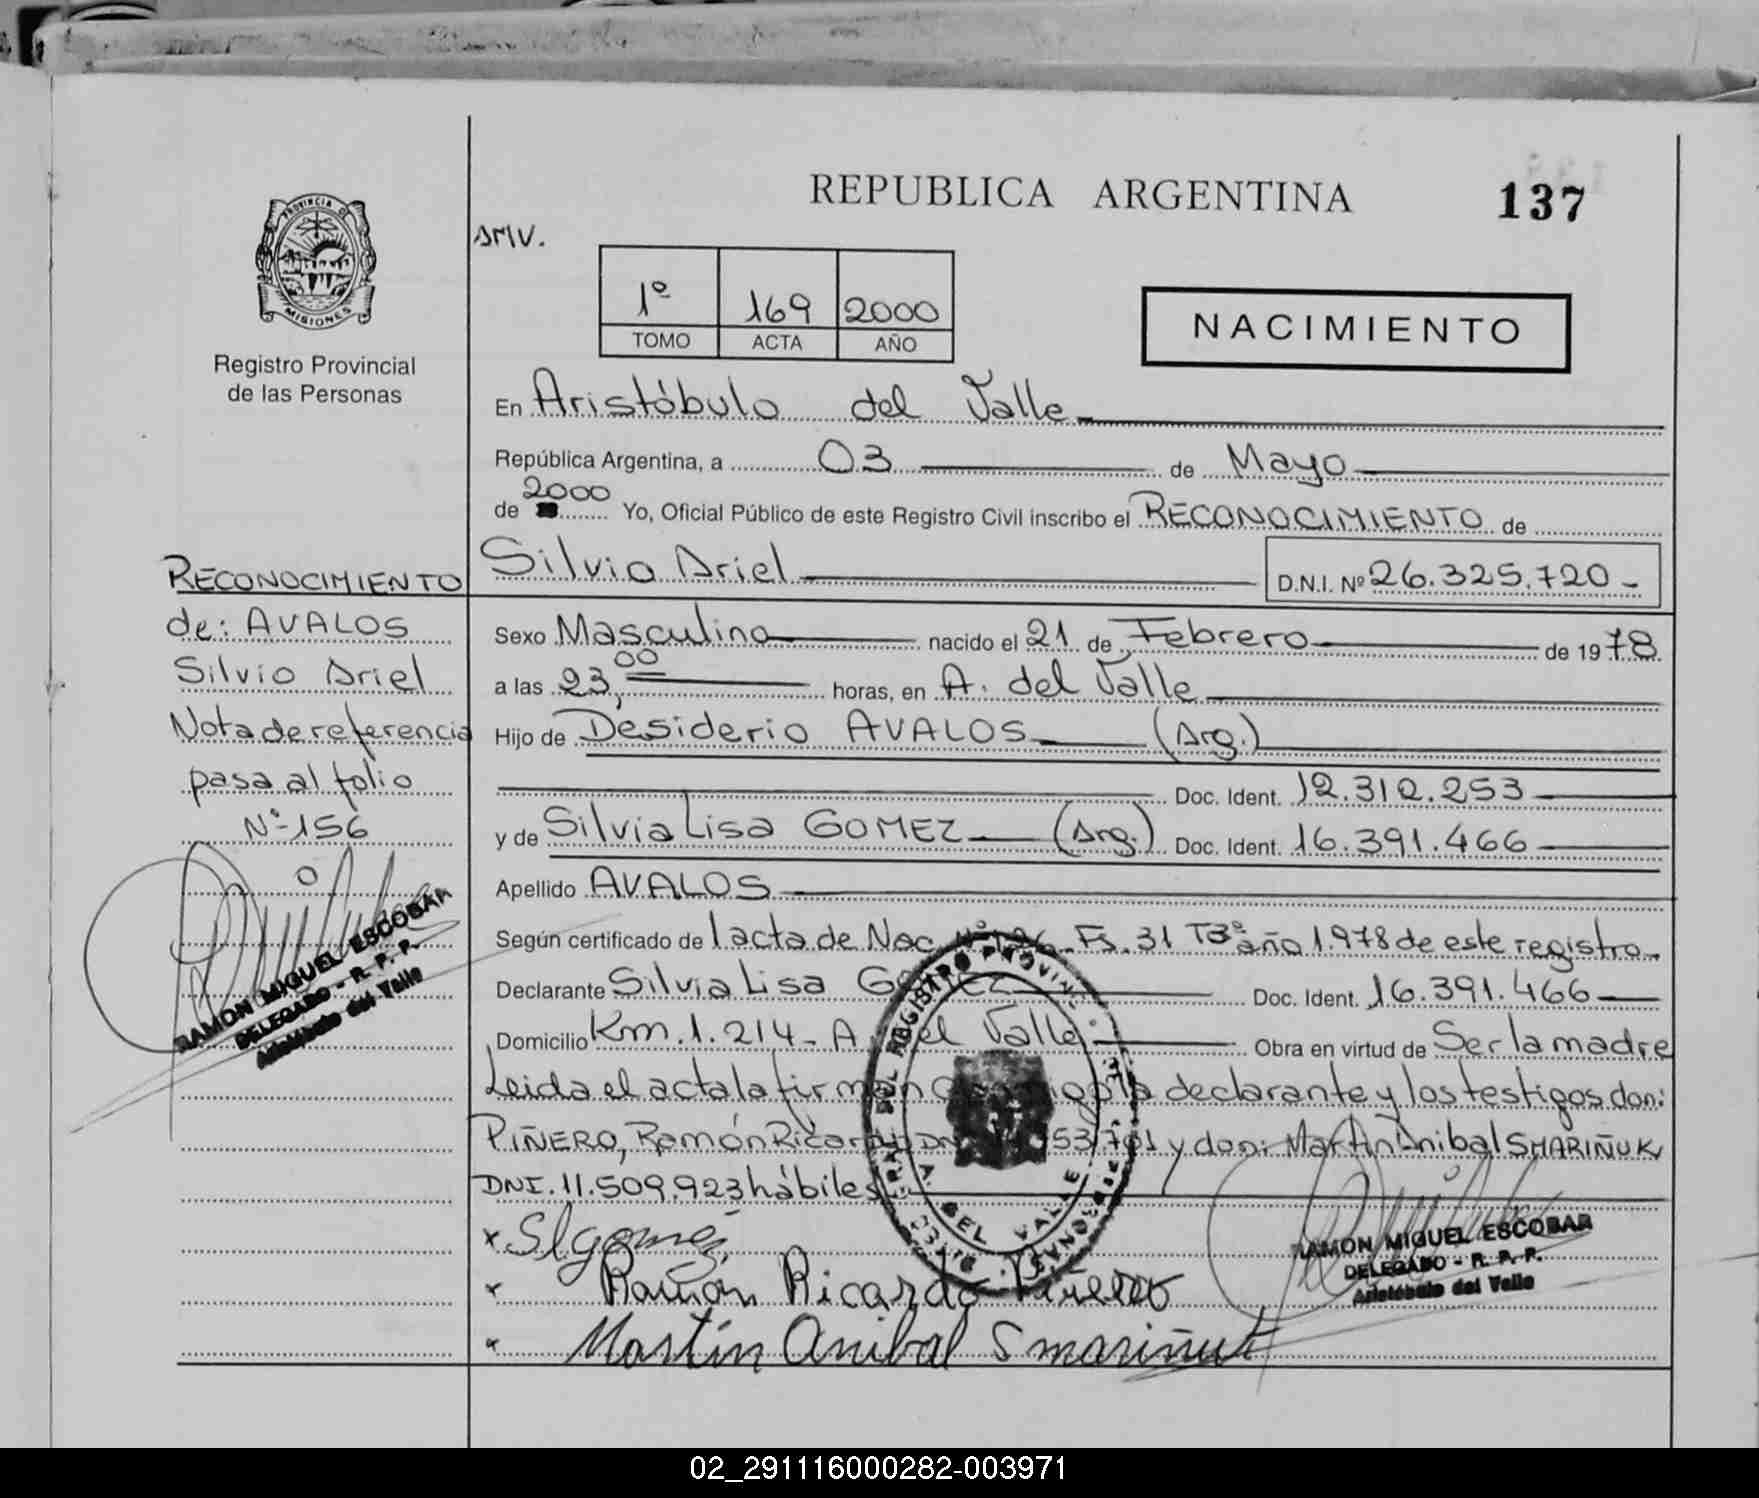 REPUBLICA ARGENTINA
137
PROVINCIA DE
MISIONES
Registro Provincial
de las Personas
SMV.
1º 169 2000
TOMO ACTA AÑO
NACIMIENTO
En Aristóbulo del Valle
República Argentina, a 03 de Mayo
de 2000 Yo, Oficial Público de este Registro Civil inscribo el RECONOCIMIENTO de
Silvio Ariel D.N.I. Nº 26.325.720-
RECONOCIMIENTO
de: AVALOS
Silvio Ariel
Nota de referencia
pasa al folio
Nº-156
RAMON MIGUEL ESCOBAR
DELEGADO - R. P. P.
Aristóbulo del Valle
Sexo Masculino nacido el 21 de Febrero de 1978.
a las 23,00 horas, en A. del Valle
Hijo de Desiderio AVALOS (Arg.)
Doc. Ident. 12.312.253
y de Silvia Lisa GOMEZ (Arg.) Doc. Ident. 16.391.466
Apellido AVALOS
Según certificado de 1 acta de Nac. Fs. 31 T3º año 1.978 de este registro.
Declarante Silvia Lisa GOMEZ Doc. Ident. 16.391.466
Domicilio Km. 1.214- A. del Valle Obra en virtud de Ser la madre
Leida el acta la firman conmigo la declarante y los testigos don:
PIÑERO, Ramón Ricardo DNI y don: Martin Anibal SMARIÑUK,
DNI. 11.509.923 hábiles.
REGISTRO PROVINCIAL
A. DEL VALLE
x SLgomez
x Ramón Ricardo Piñero
x Martín Anibal Smariñuk
RAMON MIGUEL ESCOBAR
DELEGADO - R. P. P.
Aristóbulo del Valle
02_291116000282-003971